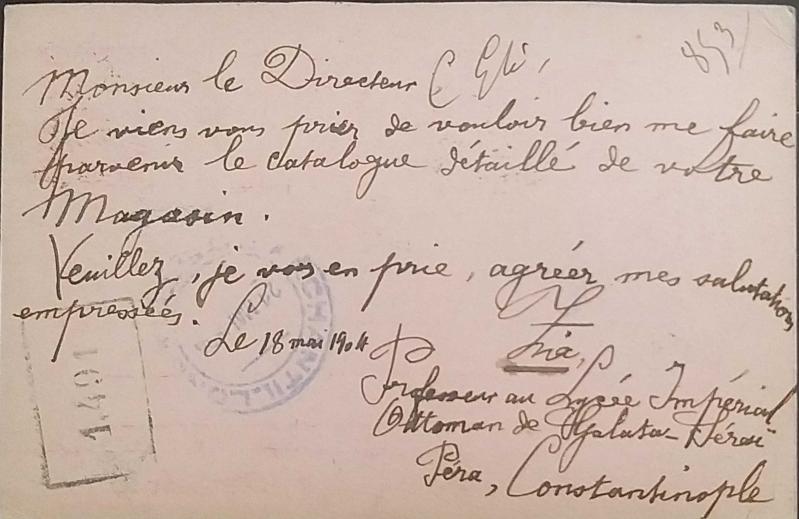 853
Monsieur le Directeur
Je viens vous prier de vouloir bien me faire
parvenir le catalogue détaillé de votre
Magasin.
Veuillez, je vous en prie, agréer mes salutations
empressées.
Le 18 mai 1904
Zia,
Professeur au Lycée Impérial
Ottoman de Galata-Séraï
Péra, Constantinople
1491
ECHANTILLONS